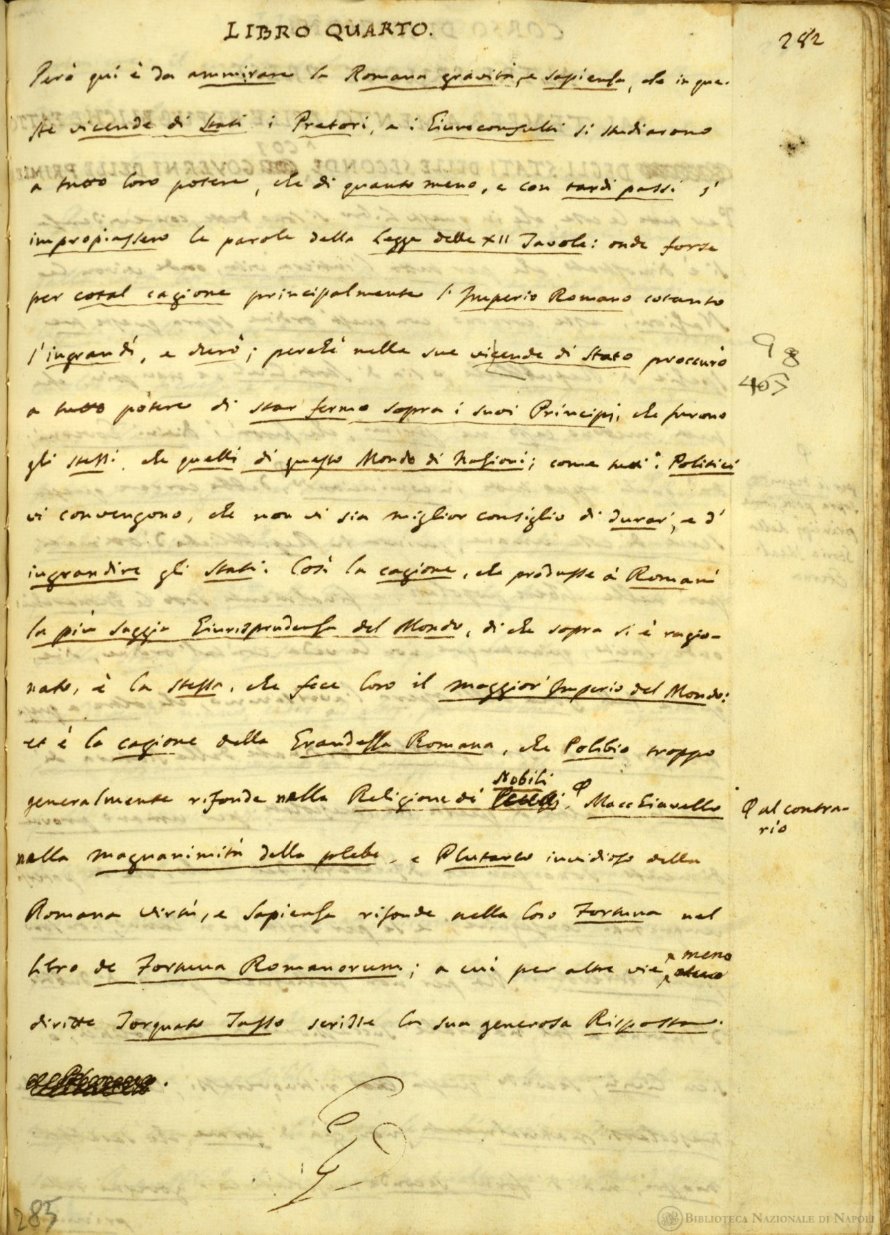 LIBRO QUARTO.
282
Però qui è da ammirare la Romana gravità, e sapienza, che in que-
ste vicende di stati i Pretori, e i Giureconsulti si studiarono
a tutto loro potere, che di quanto meno, e con tardi passi s'
impropiassero le parole della Legge delle XII Tavole: onde forse
per cotal cagione principalmente l'Imperio Romano cotanto
s'ingrandì, e durò; perché nelle sue vicende di Stato proccurò
98
405
a tutto potere di star fermo sopra i suoi Principj, che furono
gli stessi, che quelli di questo Mondo di Nazioni; come tutti i Politici
vi convengono, che non vi sia miglior consiglio di durar, e d'
ingrandire gli Stati. Così la cagione, che produsse a' Romani
la più saggia Giurisprudenza del Mondo, di che sopra si è ragio-
nato, è la stessa, che fece loro il maggior Imperio del Mondo:
et è la cagione della Grandezza Romana, che Polibio troppo
generalmente rifonde nella Religione de' Nobili, Macchiavello
al contra-
rio
nella magnanimità della plebe, e Plutarco invidioso della
Romana virtù, e sapienza rifonde nella loro Fortuna nel
libro de Fortuna Romanorum; a cui per altre vie meno
diritte Torquato Tasso scrisse la sua generosa Risposta.
285
BIBLIOTECA NAZIONALE DI NAPOLI